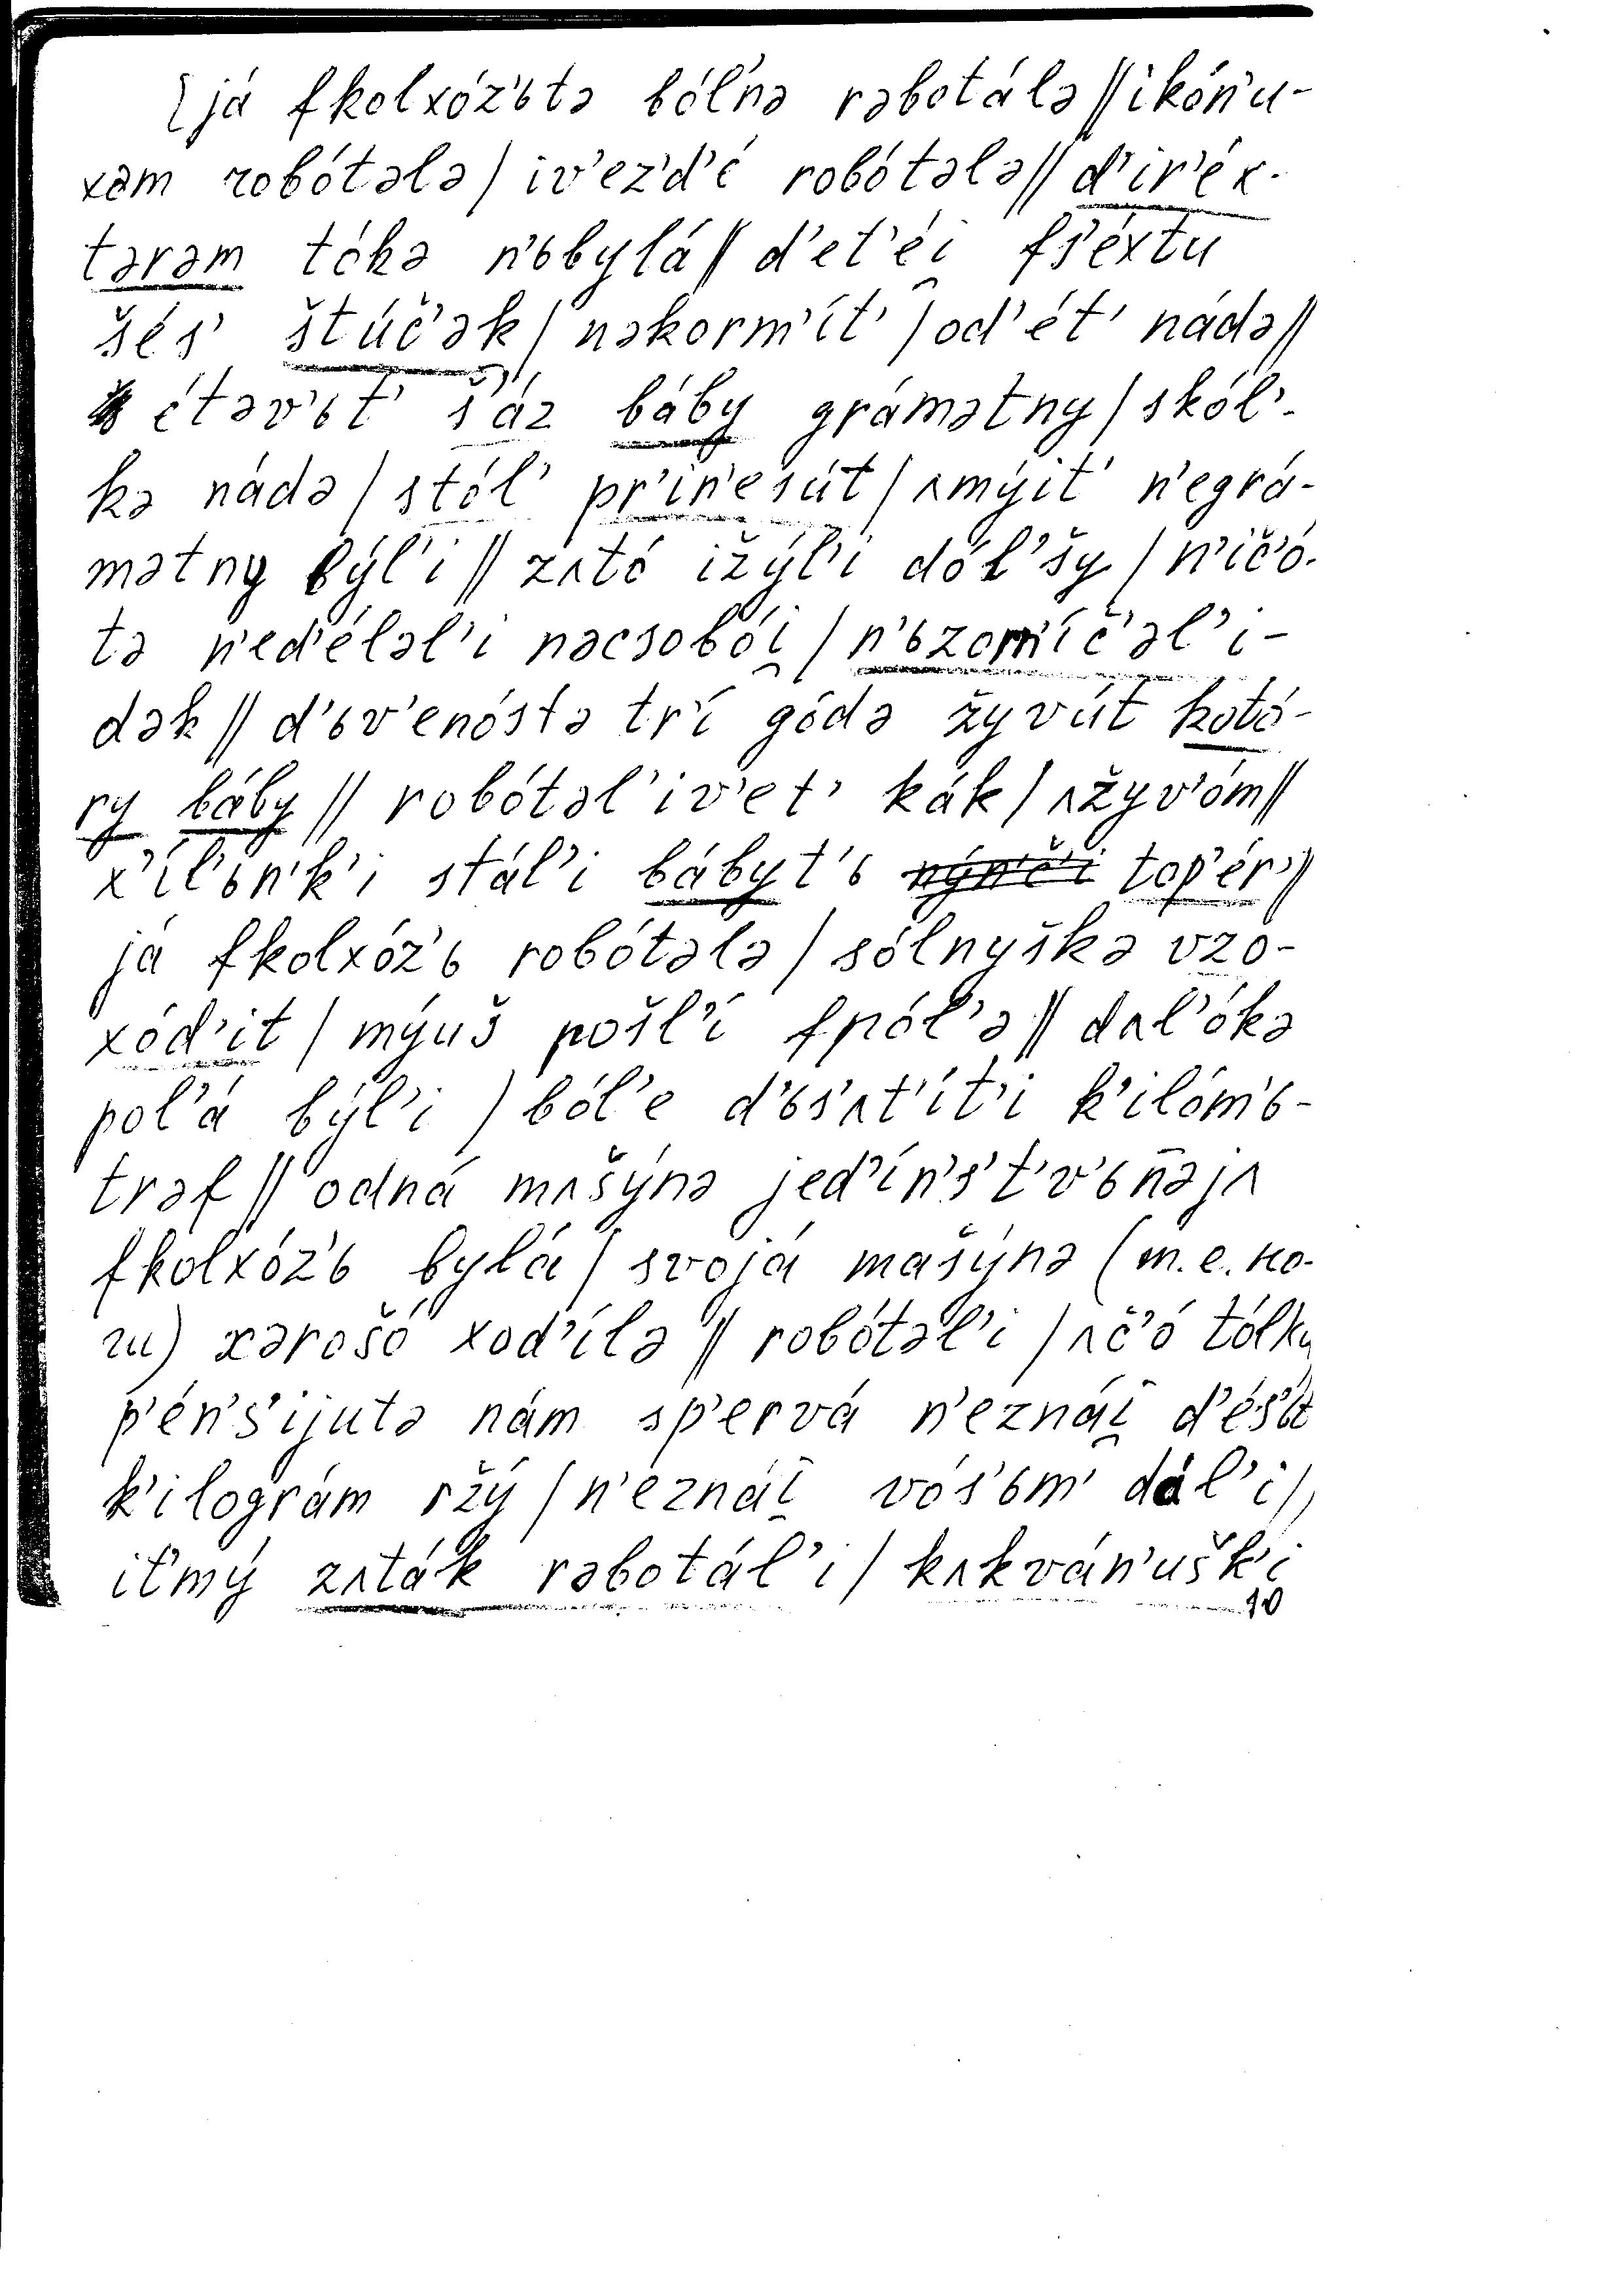 [já fkolxóz'ьtə ból'nə rəbotálə // ikón'u-
xəm robótələ / iv'ez'd'é robótələ // d'ir'éx-
tərəm tókə n'ьbylá // d'et'éi̯ fs'éxtu
šés' štúč'ək / nəkorm'ít' / od'ét' nádə //
étəv'ьt' s'áz báby grámətny / skól'-
kə nádə / stól' pr'in'esút / ʌmýit' n'egrá-
mətny býl'i // zʌtó ižýl'i dól'šy / n'ič'ó-
tə n'ed'éləl'i nəcsobói̯ / n'ьzom'íč'əl'i-
dək // d'ьv'enóstə tr'í gódə žyvút kotó-
ry báby // robótəl'iv'et' kák / ʌžyv'óm //
x'íl'ьn'k'i stál'i bábyt'ь nýn'č'i top'ér' //
já fkolxóz'ь robótələ / sólnyškə vzo-
xód'it / mýuš pošl'í fpól'ə // dʌl'ókə
pol'á býl'i / ból'e d'ьs'ʌt'ít'i k'ilóm'ь-
trəf // odná mʌšýnə jed'ín's't'v'ьn̄əjʌ
fkolxóz'ь bylá / svojá mašýnə (т.е. но-
ги) xərošó xod'ílə // robótəl'i / ʌč'ó tólku
p'én's'ijutə nám sp'ervá n'eznái̯ d'és'ьt
k'ilográm ržý / n'eznái̯ vós'ьm' dál'i //
it'mý zʌták rəbotál'i / kʌkván'ušk'i
10